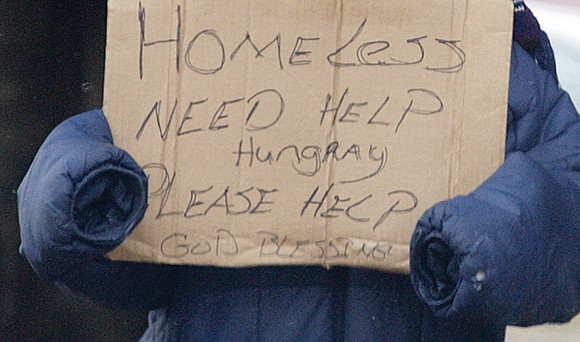 HOMELess
NEED HELP
HungRAy
PLEASE HELP
GOD BLESSING